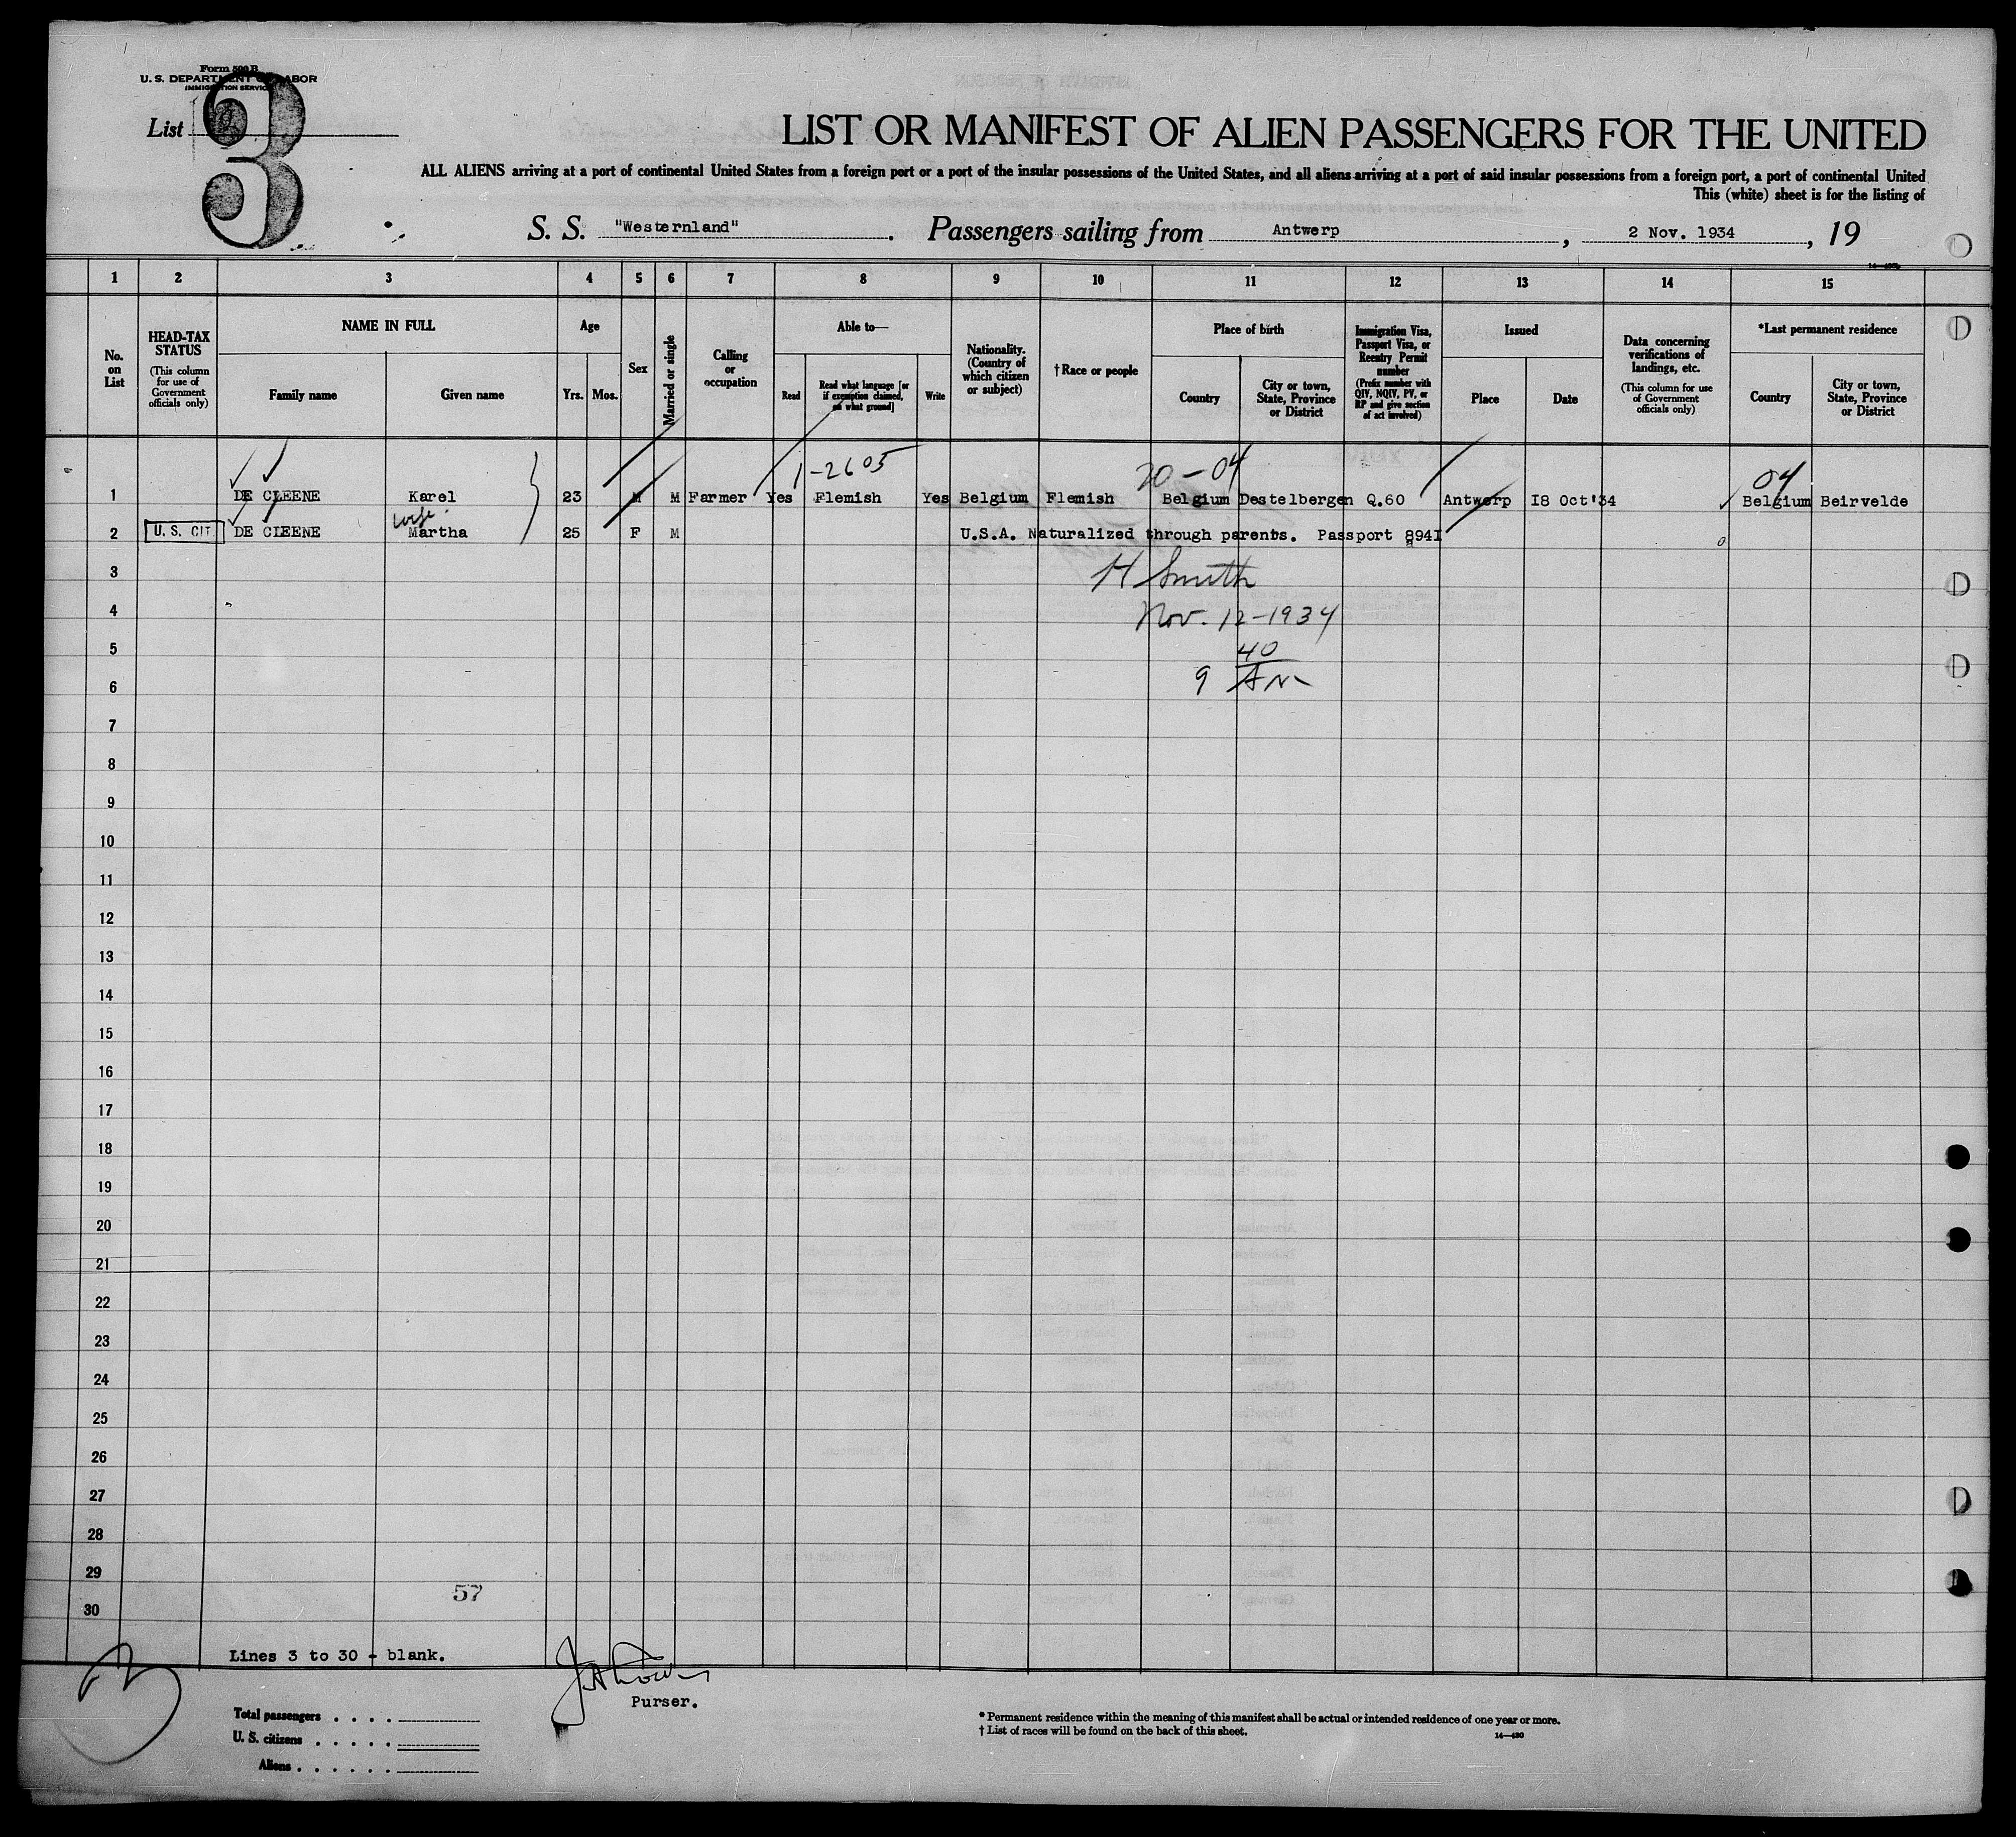 Form 500 B
U. S. DEPARTMENT OF LABOR
IMMIGRATION SERVICE
List 3
LIST OR MANIFEST OF ALIEN PASSENGERS FOR THE UNITED
ALL ALIENS arriving at a port of continental United States from a foreign port or a port of the insular possessions of the United States, and all aliens arriving at a port of said insular possessions from a foreign port, a port of continental United
This (white) sheet is for the listing of
S. S. "Westernland". Passengers sailing from Antwerp, 2 Nov. 1934, 19
1 2 3 4 5 6 7 8 9 10 11 12 13 14 15
No. on List
HEAD-TAX STATUS
(This column for use of Government officials only)
NAME IN FULL
Family name
Given name
Age
Yrs.
Mos.
Sex
Married or single
Calling or occupation
Able to—
Read
Read what language [or if exemption claimed, on what ground]
Write
Nationality. (Country of which citizen or subject)
†Race or people
Place of birth
Country
City or town, State, Province or District
Immigration Visa, Passport Visa, or Reentry Permit number
(Prefix number with QIV, NQIV, PV, or RP and give section of act involved)
Issued
Place
Date
Data concerning verifications of landings, etc.
(This column for use of Government officials only)
*Last permanent residence
Country
City or town, State, Province or District
1-2605
20-04
04
1 DE CLEENE Karel 23 M M Farmer Yes Flemish Yes Belgium Flemish Belgium Destelbergen Q.60 Antwerp I8 Oct'34 Belgium Beirvelde
wife
2 U. S. CIT DE CLEENE Martha 25 F M U.S.A. Naturalized through parents. Passport 894I
3
H Smith
4
Nov. 12-1934
5
40
6
9 AM
7
8
9
10
11
12
13
14
15
16
17
18
19
20
21
22
23
24
25
26
27
28
29
57
30
Lines 3 to 30 - blank.
3
Purser.
Total passengers . . . .
U. S. citizens . . . . .
Aliens . . . . . .
* Permanent residence within the meaning of this manifest shall be actual or intended residence of one year or more.
† List of races will be found on the back of this sheet.
14—430